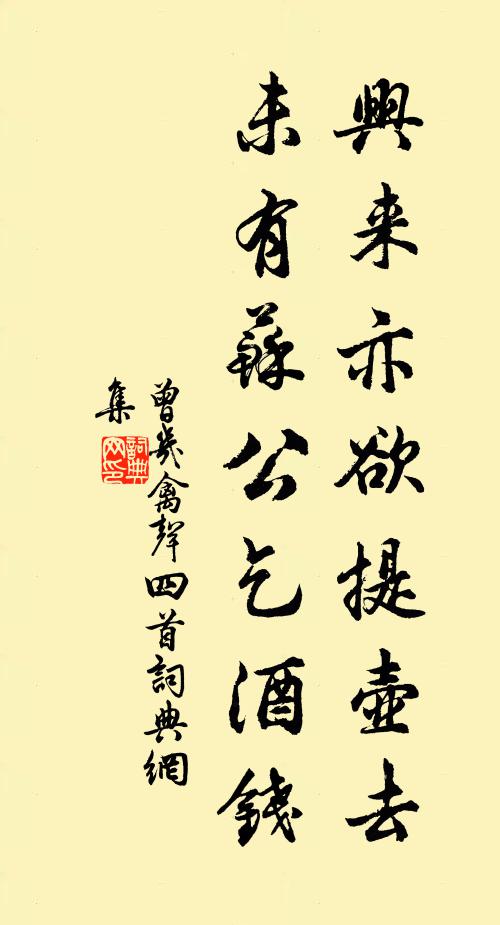 興来亦欲提壺去
未有蘇公乞酒錢
曾幾禽聲四首詞典網
集
詞典網印